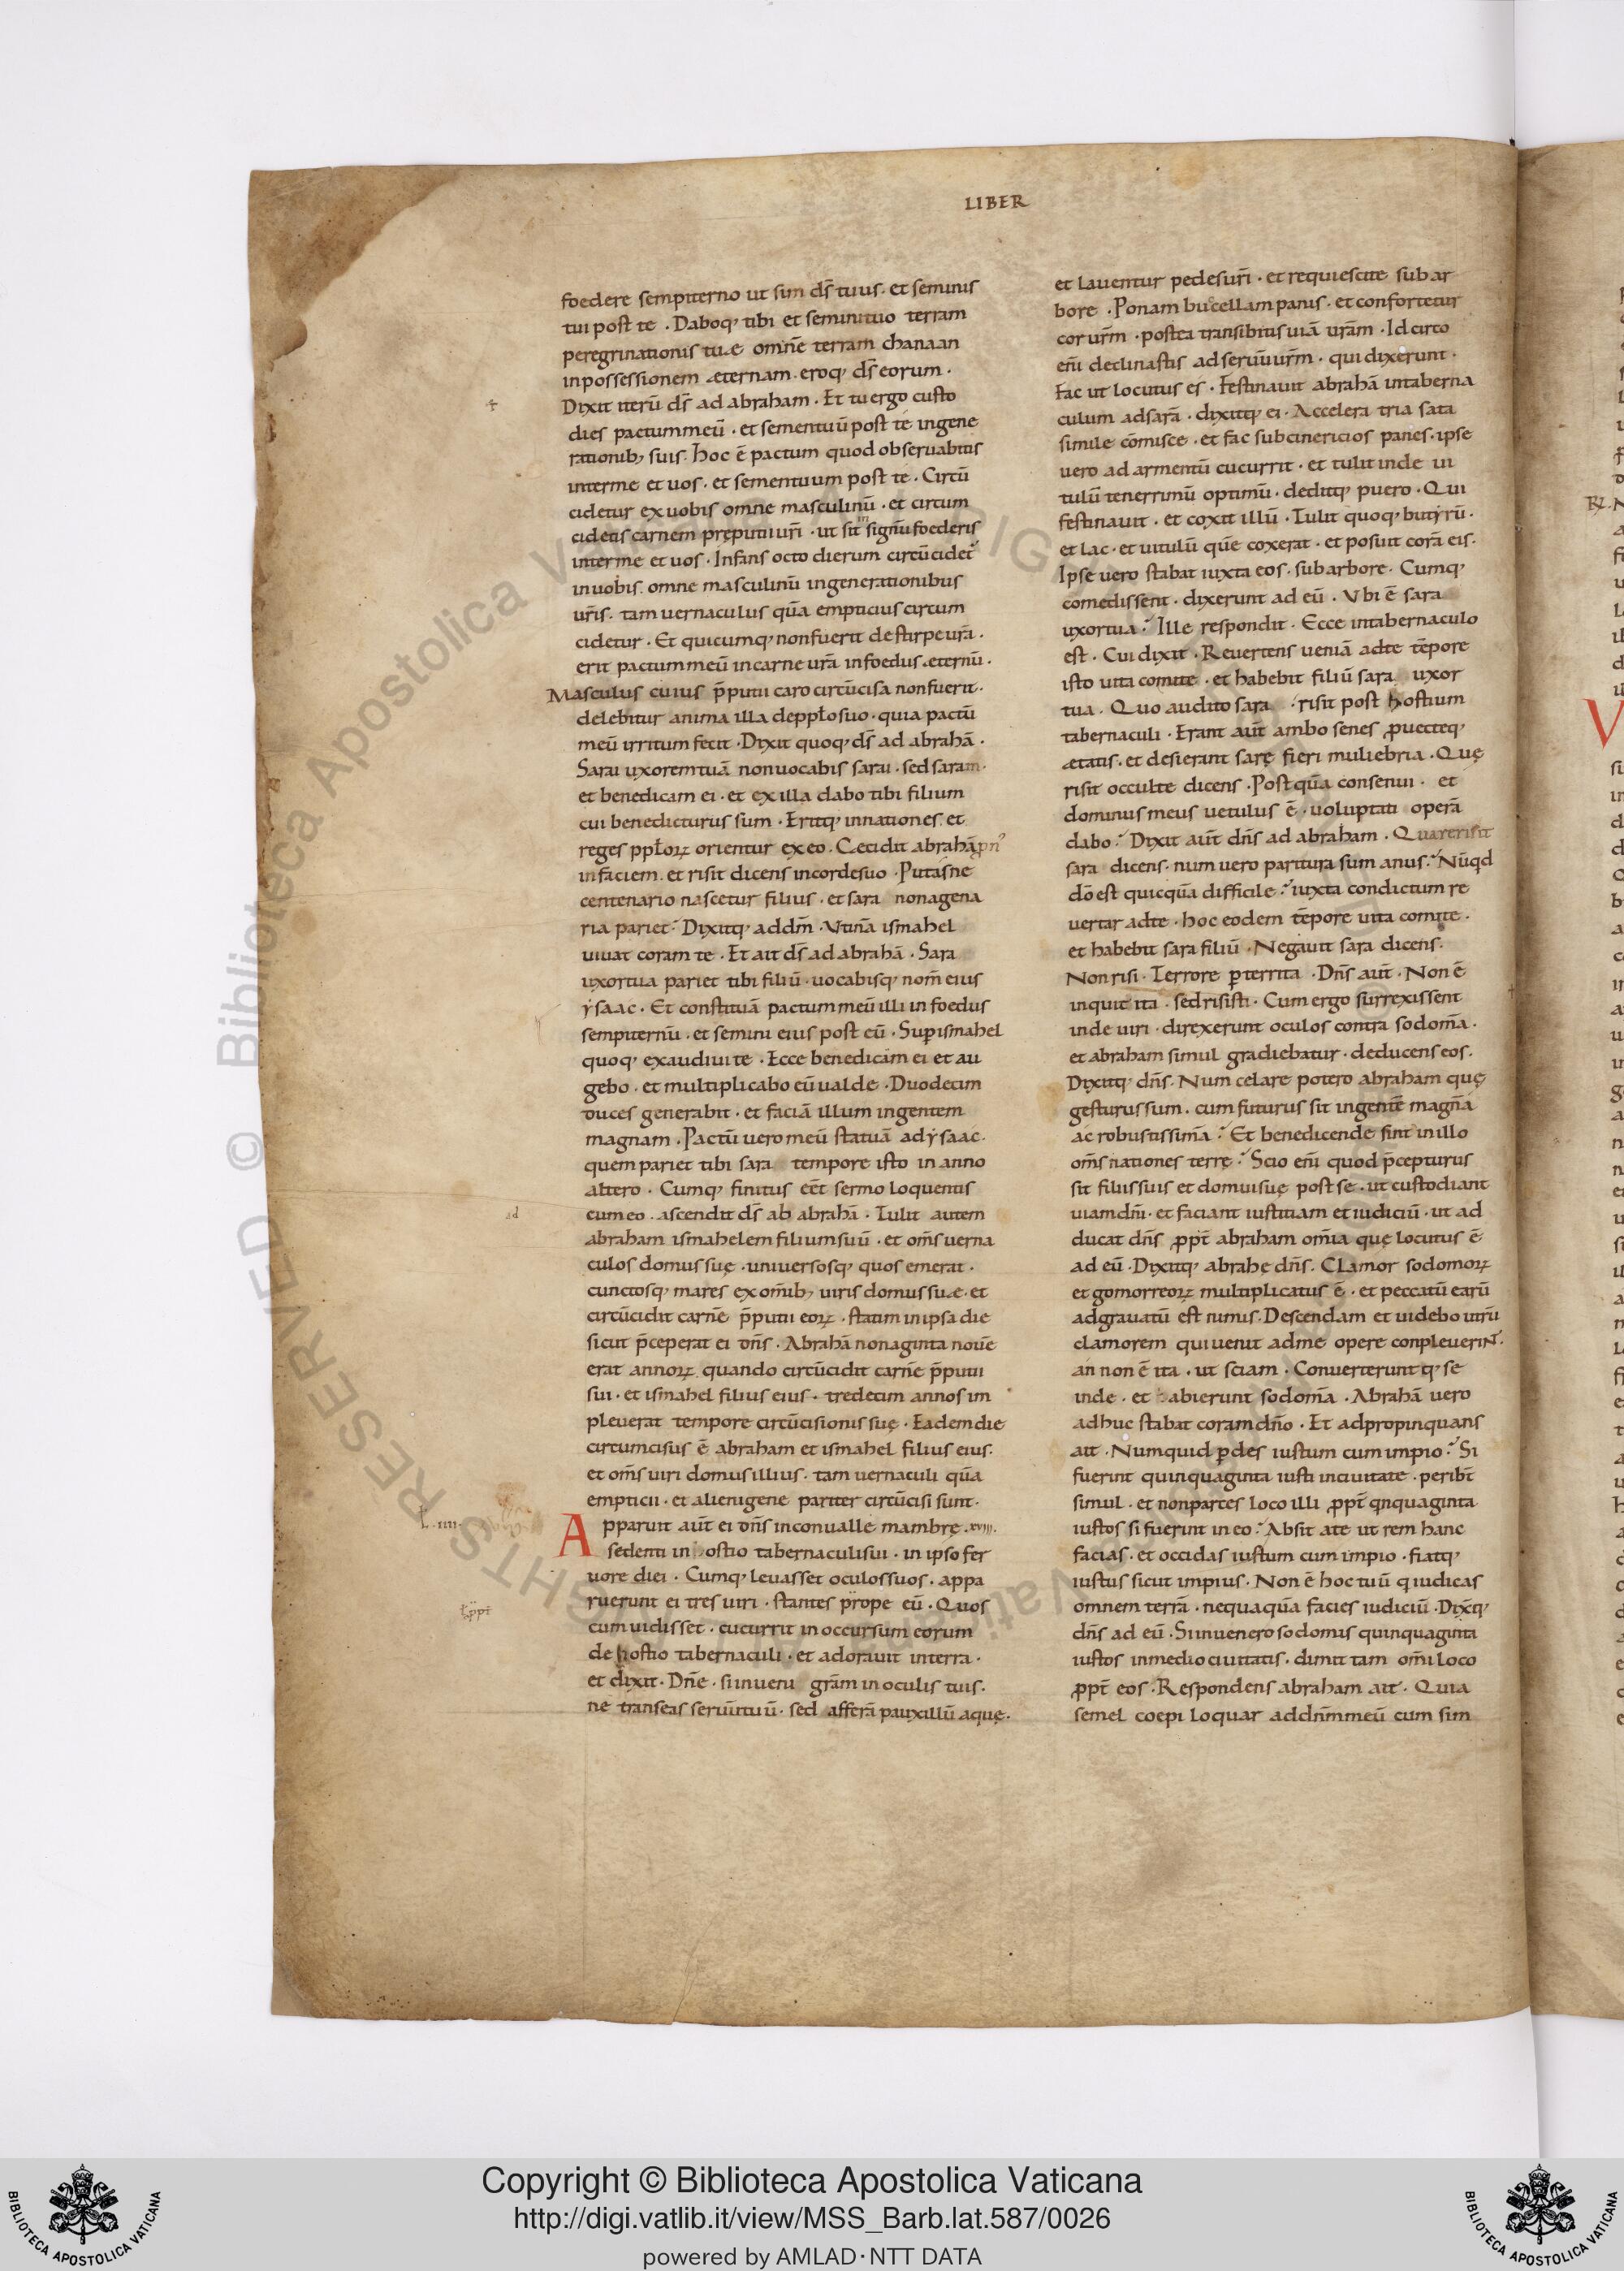 LIBER
foedere sempiterno ut sim dſ̄ tuus · et seminis
tui post te · Daboq; tibi et semini tuo terram
peregrinationis tuae omnē terram chanaan
in possessionem aeternam · eroq; dſ̄ eorum ·
Dixit iterū dſ̄ ad abraham · Et tu ergo custo
dies pactum meū · et semen tuū post te in gene
rationib; suis · hoc ē pactum quod observabitis
inter me et vos · et semen tuum post te · Circū
cidetur ex vobis omne masculinū · et circum
cidetis carnem prępucii urī · ut sit in signū foederis
inter me et vos · Infans octo dierum circūcidet᷑
in vobis · omne masculinū in generationibus
urīs · tam vernaculus quā empticius circum
cidetur · Et quicumq; non fuerit de stirpe urā ·
erit pactum meū in carne urā in foedus aeternū ·
Masculus cuius p̄putii caro circūcisa non fuerit ·
delebitur anima illa de pplo suo · quia pactū
meū irritum fecit · Dixit quoq; dſ̄ ad abrahā ·
Sarai uxorem tuā non vocabis sarai · sed saram ·
et benedicam ei · et ex illa dabo tibi filium
cui benedicturus sum · Eritq; in nationes · et
reges pploꝝ orientur ex eo · Cecidit abrahā pn̄
in faciem · et risit dicens in corde suo · Putasne
centenario nascetur filius · et sara nonagena
ria pariet · Dixitq; ad dm̄ · Utinā ismahel
vivat coram te · Et ait dſ̄ ad abrahā · Sara
uxor tua pariet tibi filiū · vocabisq; nom̄ eius
ysaac · Et constituā pactum meū illi in foedus
sempiternū · et semini eius post eū · Sup ismahel
quoq; exaudivi te · Ecce benedicam ei et au
gebo · et multiplicabo eū valde · Duodecim
duces generabit · et faciā illum in gentem
magnam · Pactū vero meū statuā ad ysaac ·
quem pariet tibi sara tempore isto in anno
altero · Cumq; finitus eēt sermo loquentis
cum eo · ascendit dſ̄ ab abrahā · Tulit autem
abraham ismahelem filium suū · et om̄s verna
culos domus suę · universosq; quos emerat ·
cunctosq; mares ex om̄ib; viris domus suae · et
circūcidit carnē p̄putii eoꝝ · statim in ipsa die
sicut p̄ceperat ei dn̄s · Abrahā nonaginta novē
erat annoꝝ quando circūcidit carnē p̄putii
sui · et ismahel filius eius · tredecim annos im
pleverat tempore circūcisionis suę · Eadem die
circumcisus ē abraham et ismahel filius eius ·
et om̄s viri domus illius · tam vernaculi quā
empticii · et alienigene pariter circūcisi sunt ·
Apparuit aūt ei dn̄s in convalle mambre · xviii ·
sedenti in ostio tabernaculi sui · in ipso fer
vore diei · Cumq; levasset oculos suos · appa
ruerunt ei tres viri · stantes prope eū · Quos
cum vidisset · cucurrit in occursum eorum
de hostio tabernaculi · et adoravit in terra ·
et dixit · Dn̄e · si inveni grām in oculis tuis ·
ne transeas servū tuū · sed afferā pauxillū aquę ·
ad
L · iiii ·
et laventur pedes urī · et requiescite sub ar
bore · Ponam buccellam panis · et confortetur
cor urm̄ · postea transibitis · viā urām · Idcirco
em̄ declinastis ad servū urm̄ · qui dixerunt ·
Fac ut locutus es · Festinavit abrahā in taberna
culum ad sarā · dixitq; ei · Accelera tria sata
simile cōmisce · et fac subcinericios panes · ipse
vero ad armentū cucurrit · et tulit inde vi
tulū tenerrimū optimū · deditq; puero · Qui
festinavit · et coxit illū · Tulit quoq; butyrū ·
et lac · et vitulū quē coxerat · et posuit corā eis ·
Ipse vero stabat iuxta eos · sub arbore · Cumq;
comedissent · dixerunt ad eū · Ubi ē sara
uxor tua · Ille respondit · Ecce in tabernaculo
est · Cui dixit · Revertens veniā ad te tēpore
isto vita comite · et habebit filiū sara uxor
tua · Quo audito sara · risit post hostium
tabernaculi · Erant aūt ambo senes ꝓvecteq;
aetatis · et desierant sarę fieri muliebria · Quę
risit occulte dicens · Postquā consenui · et
dominus meus vetulus ē · voluptati operā
dabo · Dixit aūt dn̄s ad abraham · Quare risit
sara dicens · num vero paritura sum anus · Nūqd
dō est quicquā difficile · iuxta condictum re
vertar ad te · hoc eodem tēpore vita comite ·
et habebit sara filiū · Negavit sara dicens ·
Non risi · Terrore pterrita · Dn̄s aūt · Non ē
inquit ita · sed risisti · Cum ergo surrexissent
inde viri · direxerunt oculos contra sodomā ·
et abraham simul gradiebatur · deducens eos ·
Dixitq; dn̄s · Num celare potero abraham quę
gesturus sum · cum futurus sit in gentē magnā
ac robustissimā · Et benedicende sint in illo
om̄s nationes terrę · Scio em̄ quod p̄cepturus
sit filiis suis et domui suę post se · ut custodiant
viam dn̄i · et faciant iustitiam et iudiciū · ut ad
ducat dn̄s ꝓpt̄ abraham om̄ia quę locutus ē
ad eū · Dixitq; abrahe dn̄s · Clamor sodomoꝝ
et gomorreoꝝ multiplicatus ē · et peccatū earū
adgravatū est nimis · Descendam et videbo utrū
clamorem qui venit ad me opere conpleverint ·
an non ē ita · ut sciam · Converteruntq; se
inde · et abierunt sodomā · Abrahā vero
adhuc stabat coram dn̄o · Et adpropinquans
ait · Numquid pdes iustum cum impio · Si
fuerint quinquaginta iusti in civitate · peribt̄
simul · et non parces loco illi ꝓpt̄ qnquaginta
iustos si fuerint in eo · Absit a te ut rem hanc
facias · et occidas iustum cum impio · fiatq;
iustus sicut impius · Non ē hoc tuū q iudicas
omnem terrā · nequaquā facies iudiciū · Dixq;
dn̄s ad eū · Si invenero sodomis quinquaginta
iustos in medio civitatis · dimittam om̄i loco
ꝓpt̄ eos · Respondens abraham ait · Quia
semel coepi loquar ad dn̄m meū cum sim
Copyright © Biblioteca Apostolica Vaticana
http://digi.vatlib.it/view/MSS_Barb.lat.587/0026
powered by AMLAD·NTT DATA
BIBLIOTECA APOSTOLICA VATICANA
BIBLIOTECA APOSTOLICA VATICANA